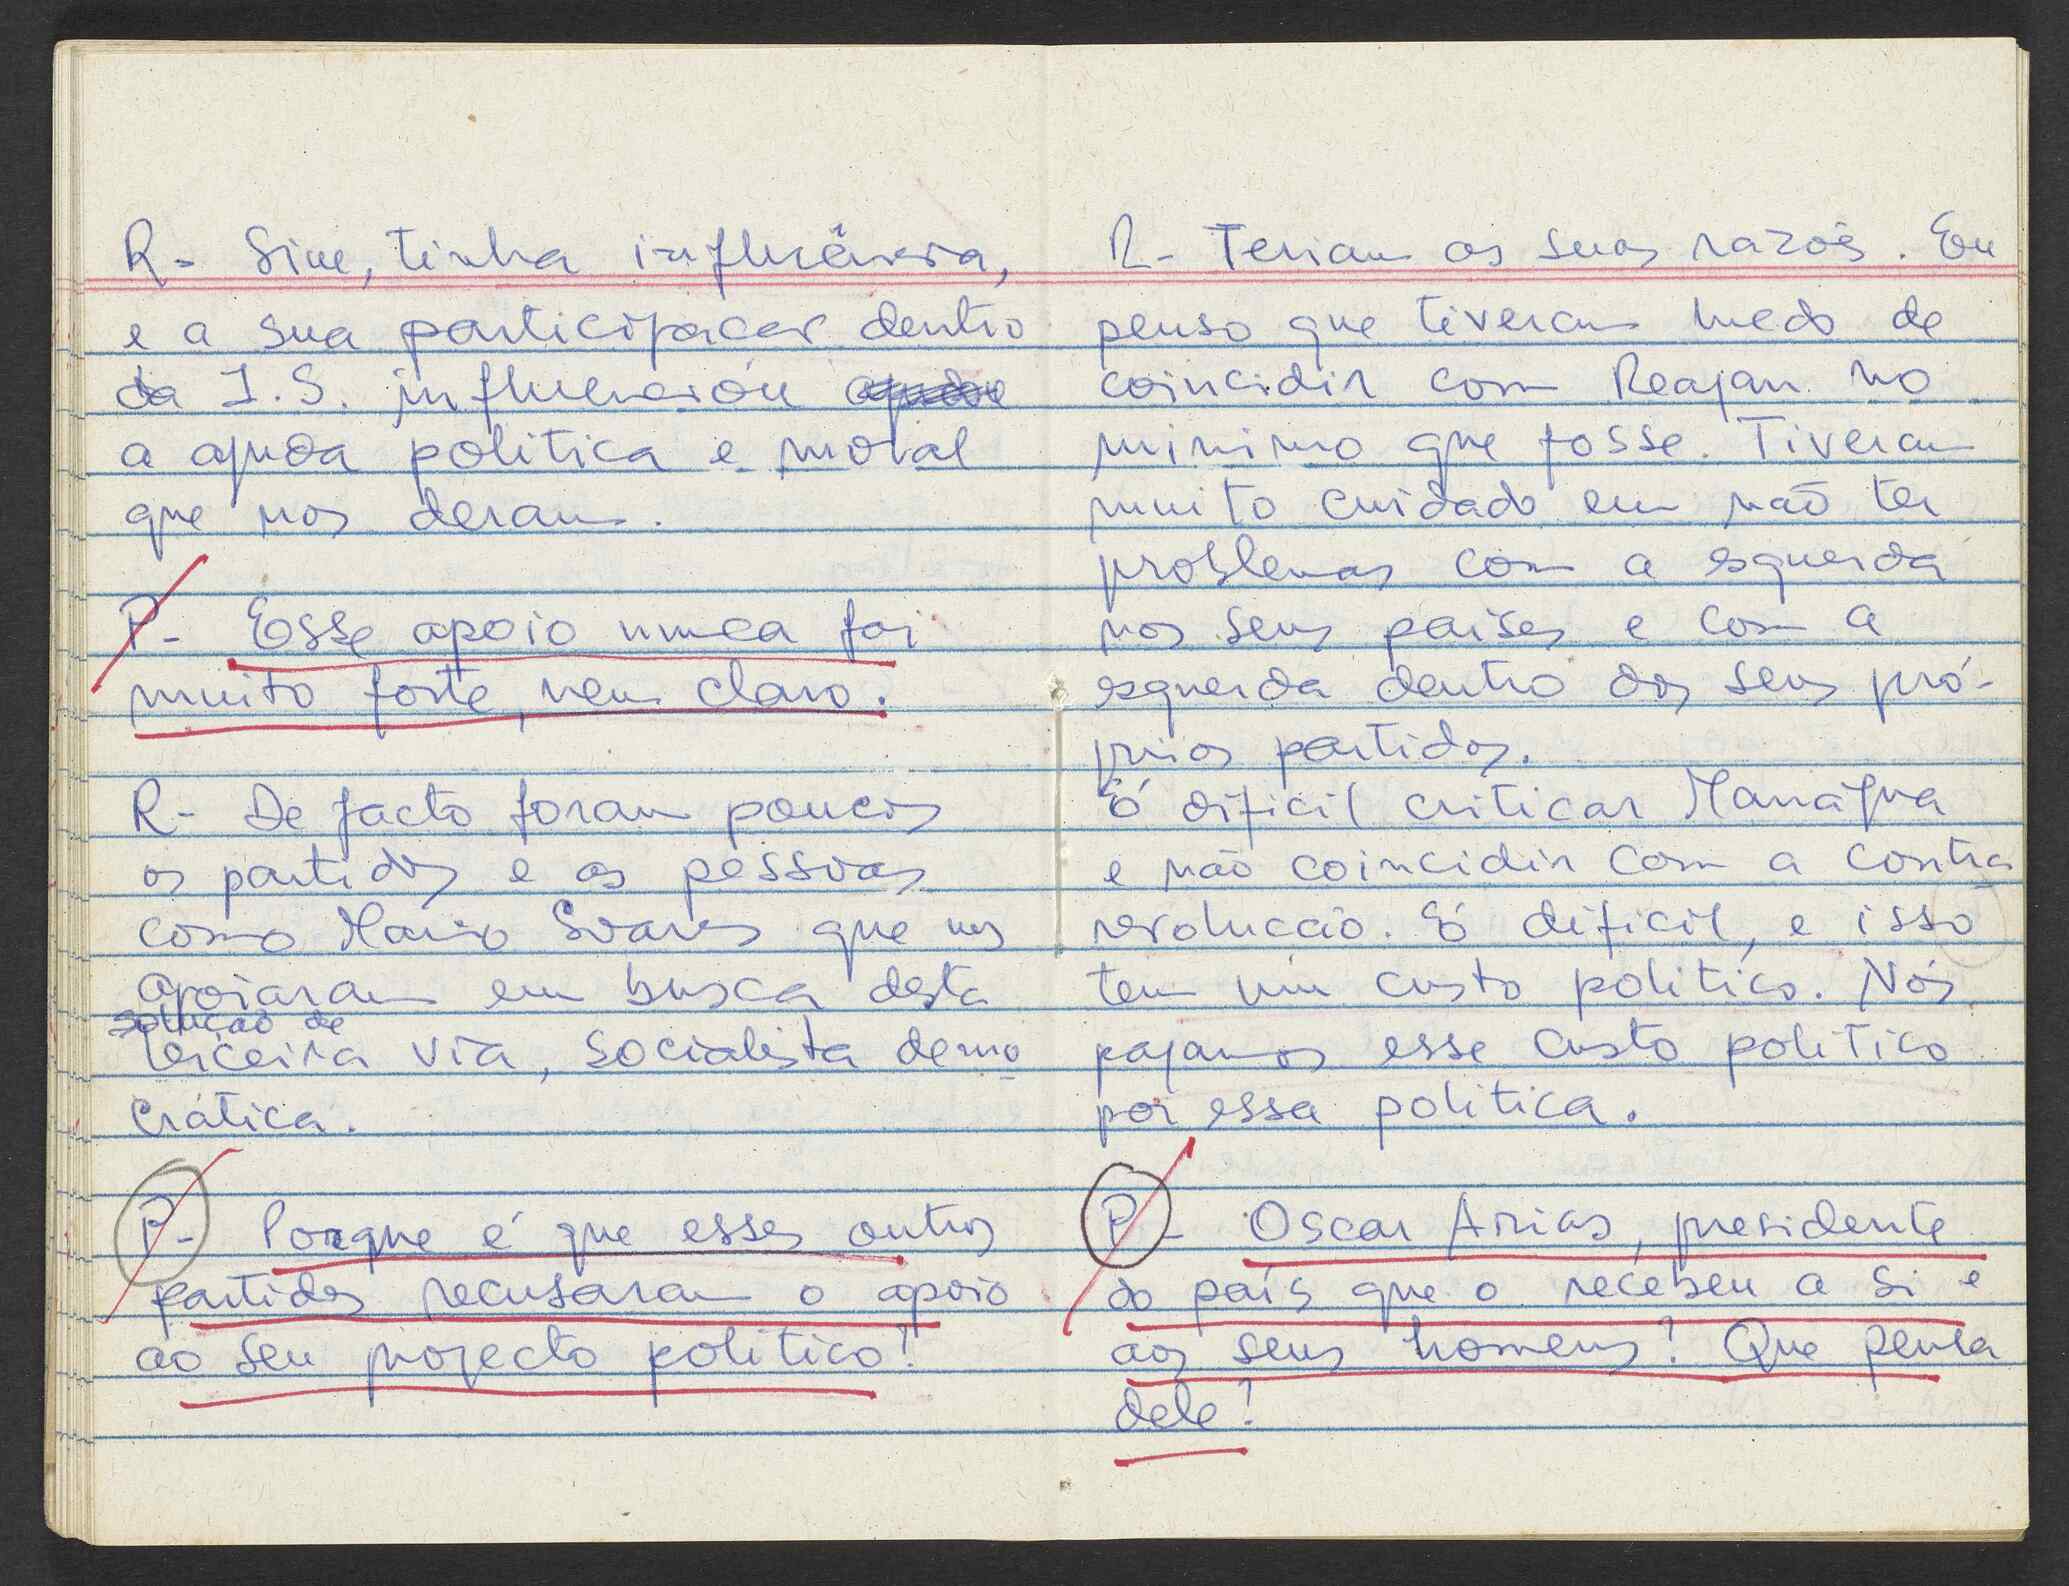 R- Sim, tinha influência,
e a sua participacao dentro
da I.S. influenciou
a ajuda politica e moral
que nos deram.
P- Esse apoio nunca foi
muito forte, nem claro.
R- De facto foram poucos
os partidos e as pessoas
como Mario Soares que nos
apoiaram em busca desta
solução de
terceira via, socialista demo
crática.
P- Porque é que esses outros
partidos recusaram o apoio
ao seu projecto politico?
R- Teriam as suas razões. Eu
penso que tiveram medo de
coincidir com Reagan no
minimo que fosse. Tiveram
muito cuidado em não ter
problemas com a esquerda
nos seus países e com a
esquerda dentro dos seus pró-
prios partidos.
É dificil criticar Manágua
e não coincidir com a contra
revoluccão. É dificil, e isso
tem um custo politico. Nós
pagamos esse custo politico
por essa politica.
P- Oscar Arias, presidente
do país que o recebeu a si e
aos seus homens? Que pensa
dele?